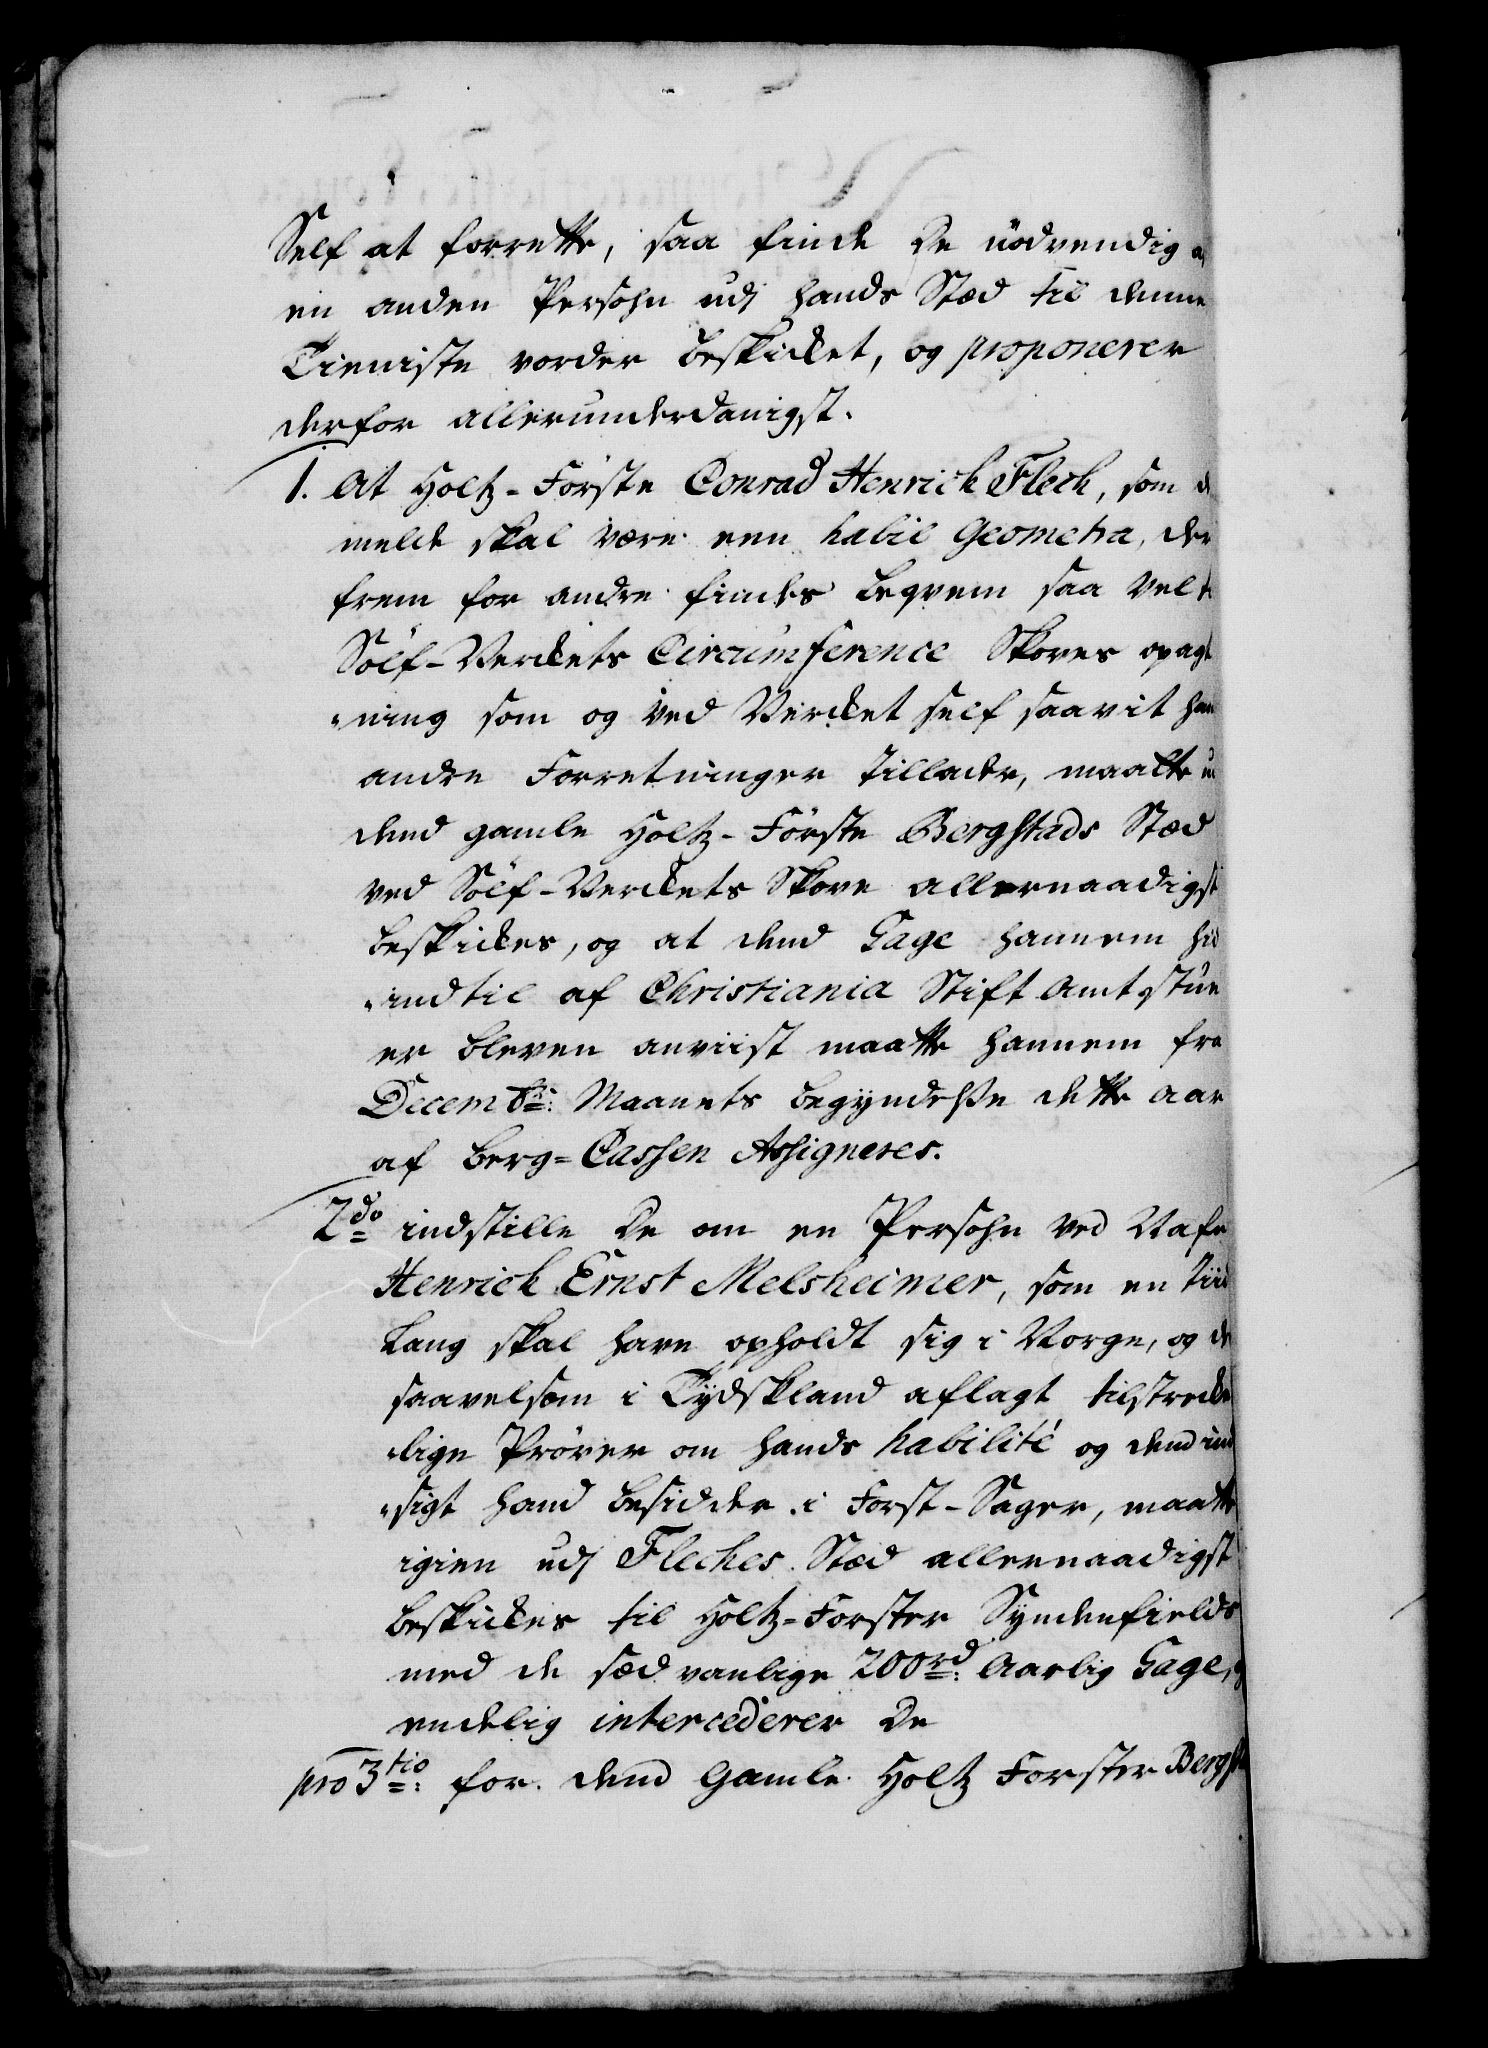 Self at forrette, saa finde De nödvendig a
en anden Persohn udj hands Stæd til denne
Tieniste vorder beskicket, og proponerer
derfor allerunderdanigst.
1. At Holtz-Förster Conrad Henrich Flech, som d
melde skal være een habil Geometra, der
frem for andre findes beqvem saa vel
Sölf-Verckets Circumference Skoves opagt
"ning som og ved Vercket self saavit han
andre Forretninger tillader, maatte u
dend gamle Holtz-Förster Bergstads Stæd
ved Sölf-Verckets Skove allernaadigst
beskickes, og at dend Gage hannem hid
"indtil af Christiania Stift Amtstue
er bleven anviist maatte hannem fra
Decembr: Maanets begyndelse dette Aar
af Berg-Cassen Assigneres.
2do indstille De om en Persohn ved Nafn
Henrich Ernst Melsheimer, som en Tiid
lang skal have opholdt sig i Norge, og d
saavelsom i Tydskland aflagt tilstrecke
"lige Pröver om hands habilité og dend ind
"sigt hand besidder i Forst-Sager, maatte
igien udj Fleches Stæd allernaadigst
beskickes til Holtz-Forster Syndenfields
med de sædvanlige 200rd: Aarlig Gage,
endelig intercederer De
pro 3tio: for dend Gamle Holtz Forster Bergst